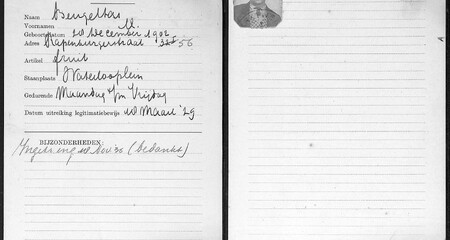 Naam Beugeltas
Voornamen M.
Geboortedatum 10 December 1902
Adres Rapenburgerstraat 56
Artikel fruit
Staanplaats Waterlooplein
Gedurende Maandag t/m Vrijdag
Datum uitreiking legitimatiebewijs 10 Maart '29
BIJZONDERHEDEN:
(bedankt)